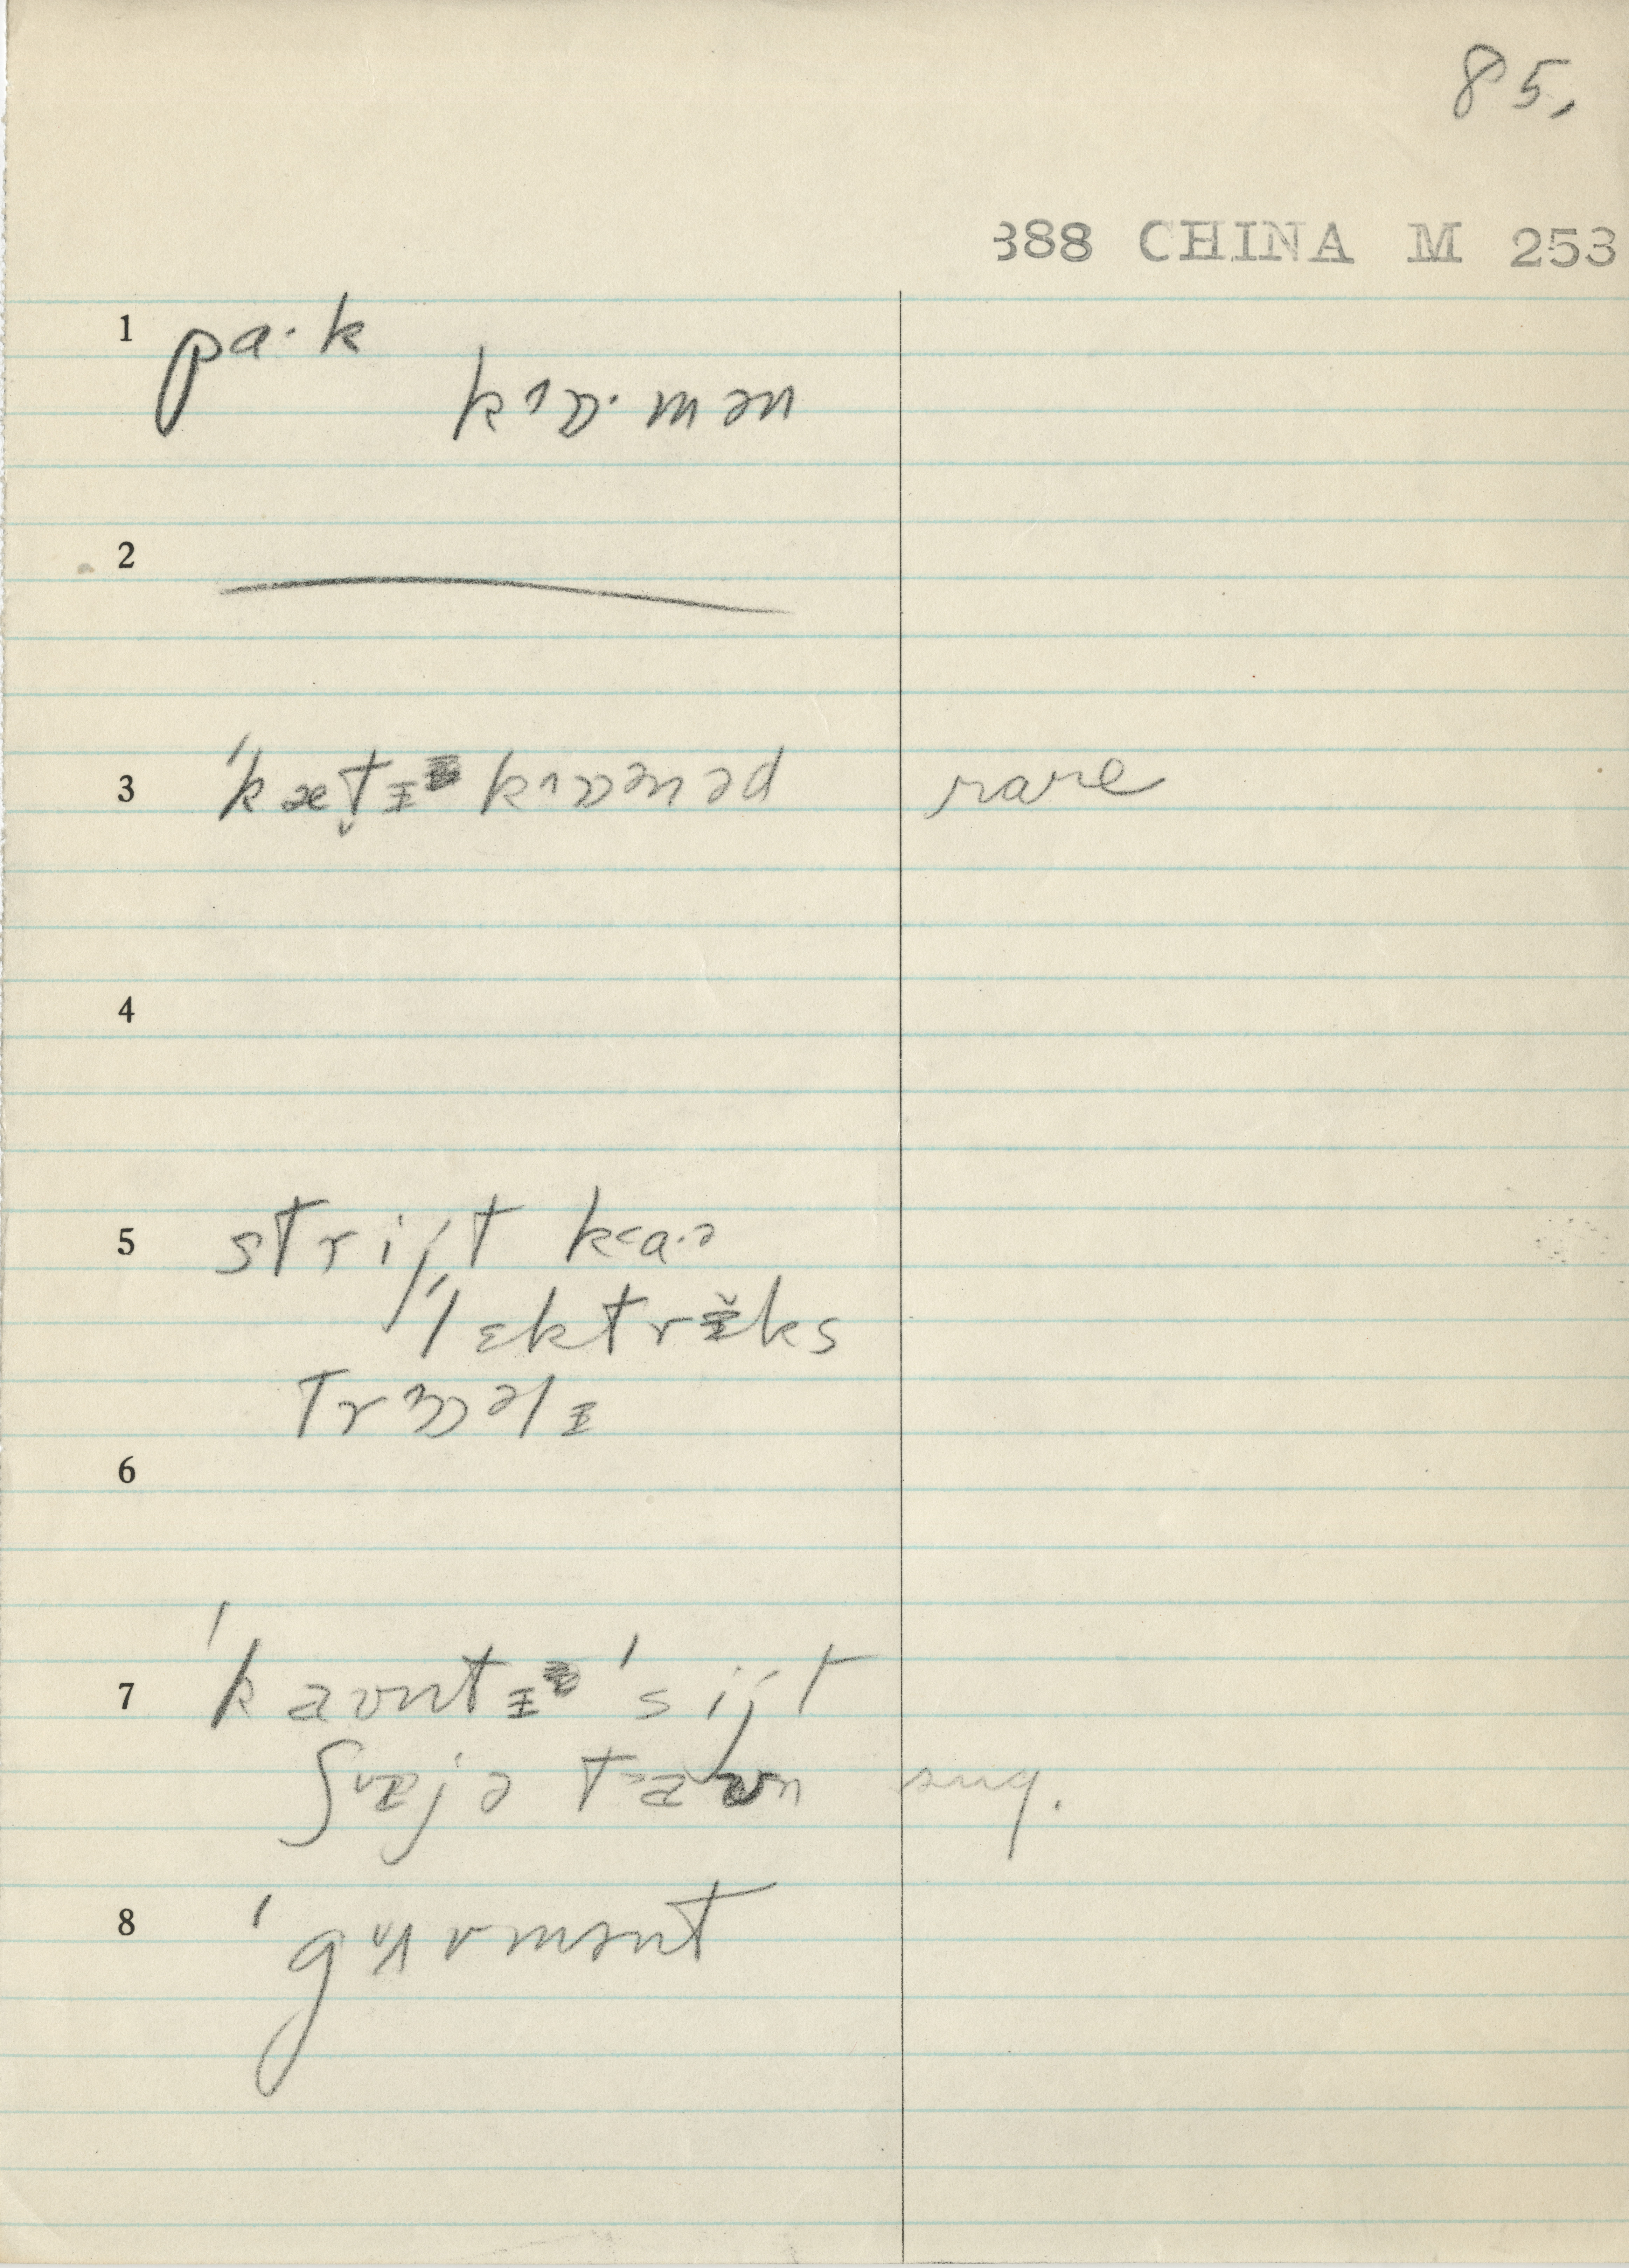 85.
388 CHINA M 253
1 pa·k
kɒ·mən
2
3 ˈkæt̬ɪ kɒnəd rare
4
5 strijt ka·ə
ˈlɛktrɪ̆ks
trɒəlɪ
6
7 ˈkaʊntɪ ˈsijt
ʃɪjə taʊn sug.
8 ˈgʌvmənt